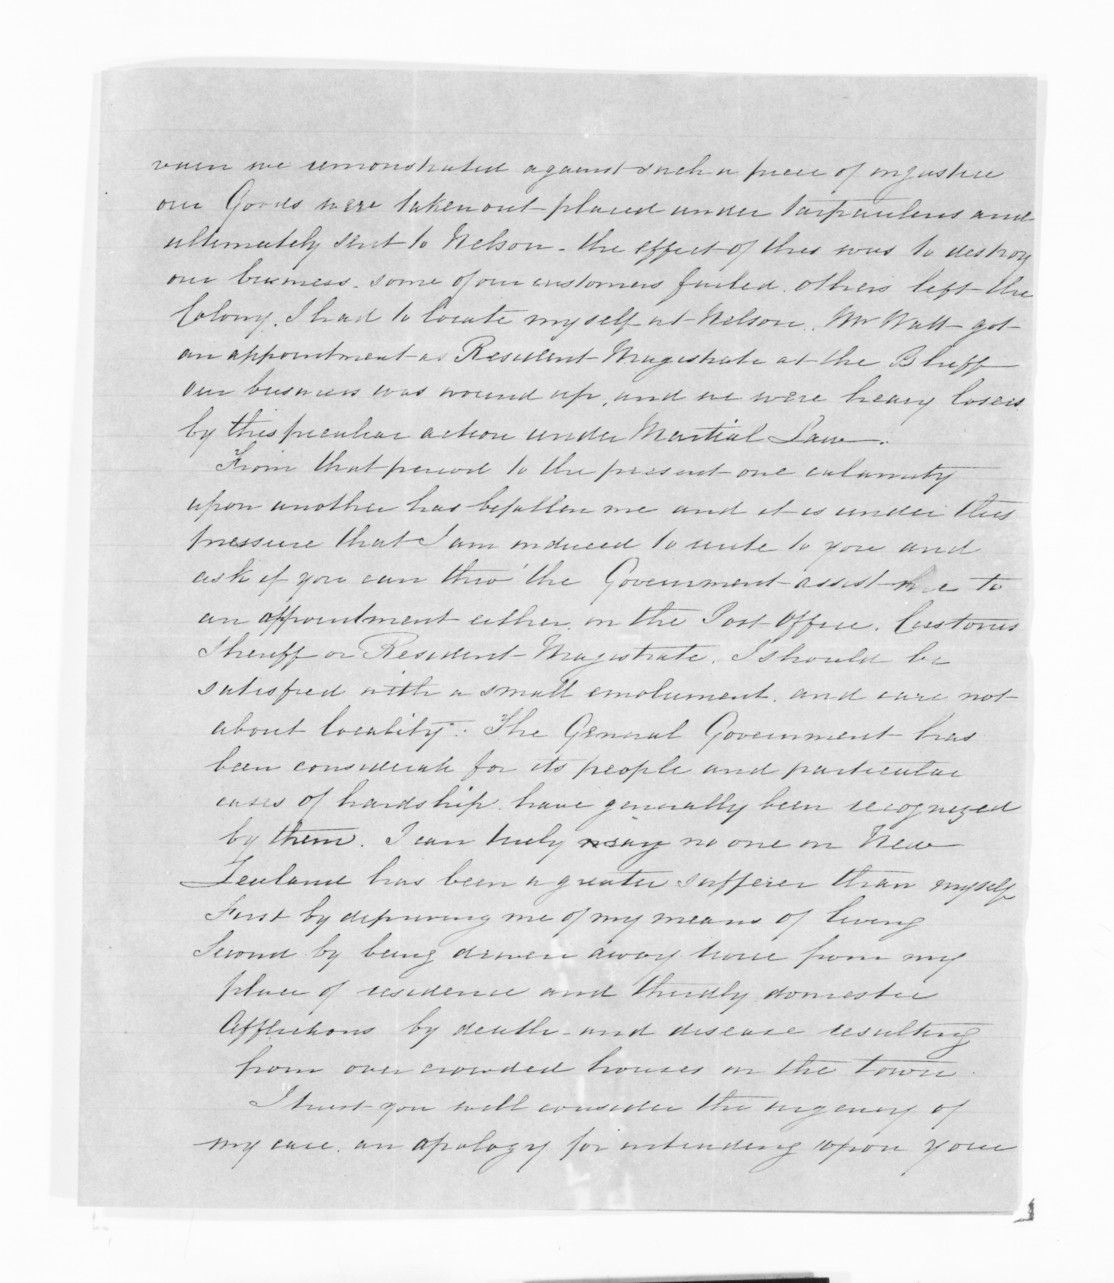 when we remonstrated against such a piece of injustice
our Goods were taken out placed under tarpaulens and
ultimately sent to Nelson - the effect of this was to destroy
our business. some of our customers failed. others left the
Colony. I had to locate myself at Nelson. Mr Watt got
an appointment as Resident Magistrate at the Bluff
our business was wound up, and we were heavy losers
by this peculiar action under Martial Law.
From that period to the present one calamity
upon another has befallen me and it is under this
pressure that I am induced to write to you and
ask if you can thro' the Government assist me to
an appointment either in the Post Office. Customs
Sheriff or Resident Magistrate. I should be
satisfied with a small emolument. and care not
about locality. The General Government has
been considerate for its people and particular
cases of hardship have generally been recognized
by them. I can truly say no one in New
Zealand has been a greater sufferer than myself
First by depriving me of my means of living
Second by being driven away from my
place of residence and thirdly domestic
Afflictions by death - and disease resulting
from over crowded houses in the town.
I trust you will consider the urgency of
my case. an apology for intending upon your